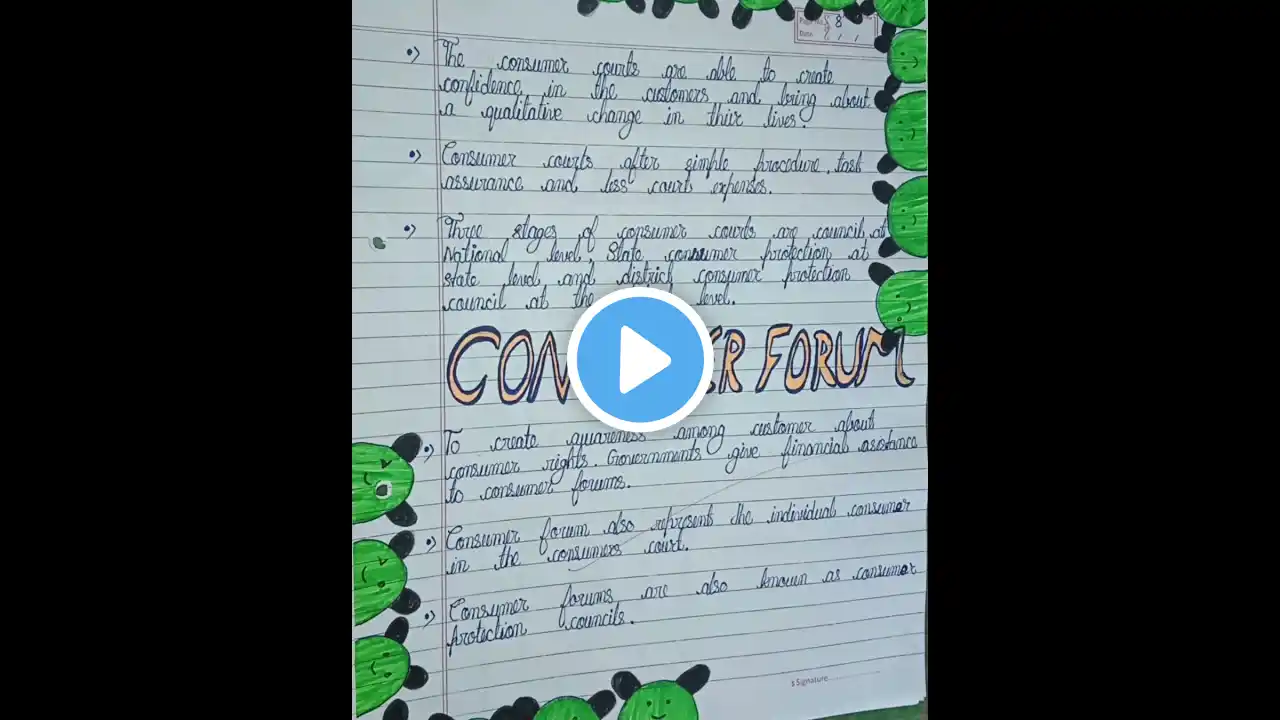 Page No. 8
Date
The consumer courts are able to create
confidence in the customers and bring about
a qualitative change in thier lives.
Consumer courts after simple procedure, task
assurance and less court expenses.
Three stages of consumer courts are council at
National level, State consumer protection at
state level and district consumer protection
council at the level.
CON ER FORUM
To create awareness among customer about
consumer rights. Governments give financial assistance
to consumer forums.
Consumer forum also represents the individual consumer
in the consumers court.
Consumer forums are also known as consumer
protection councils.
s Signature